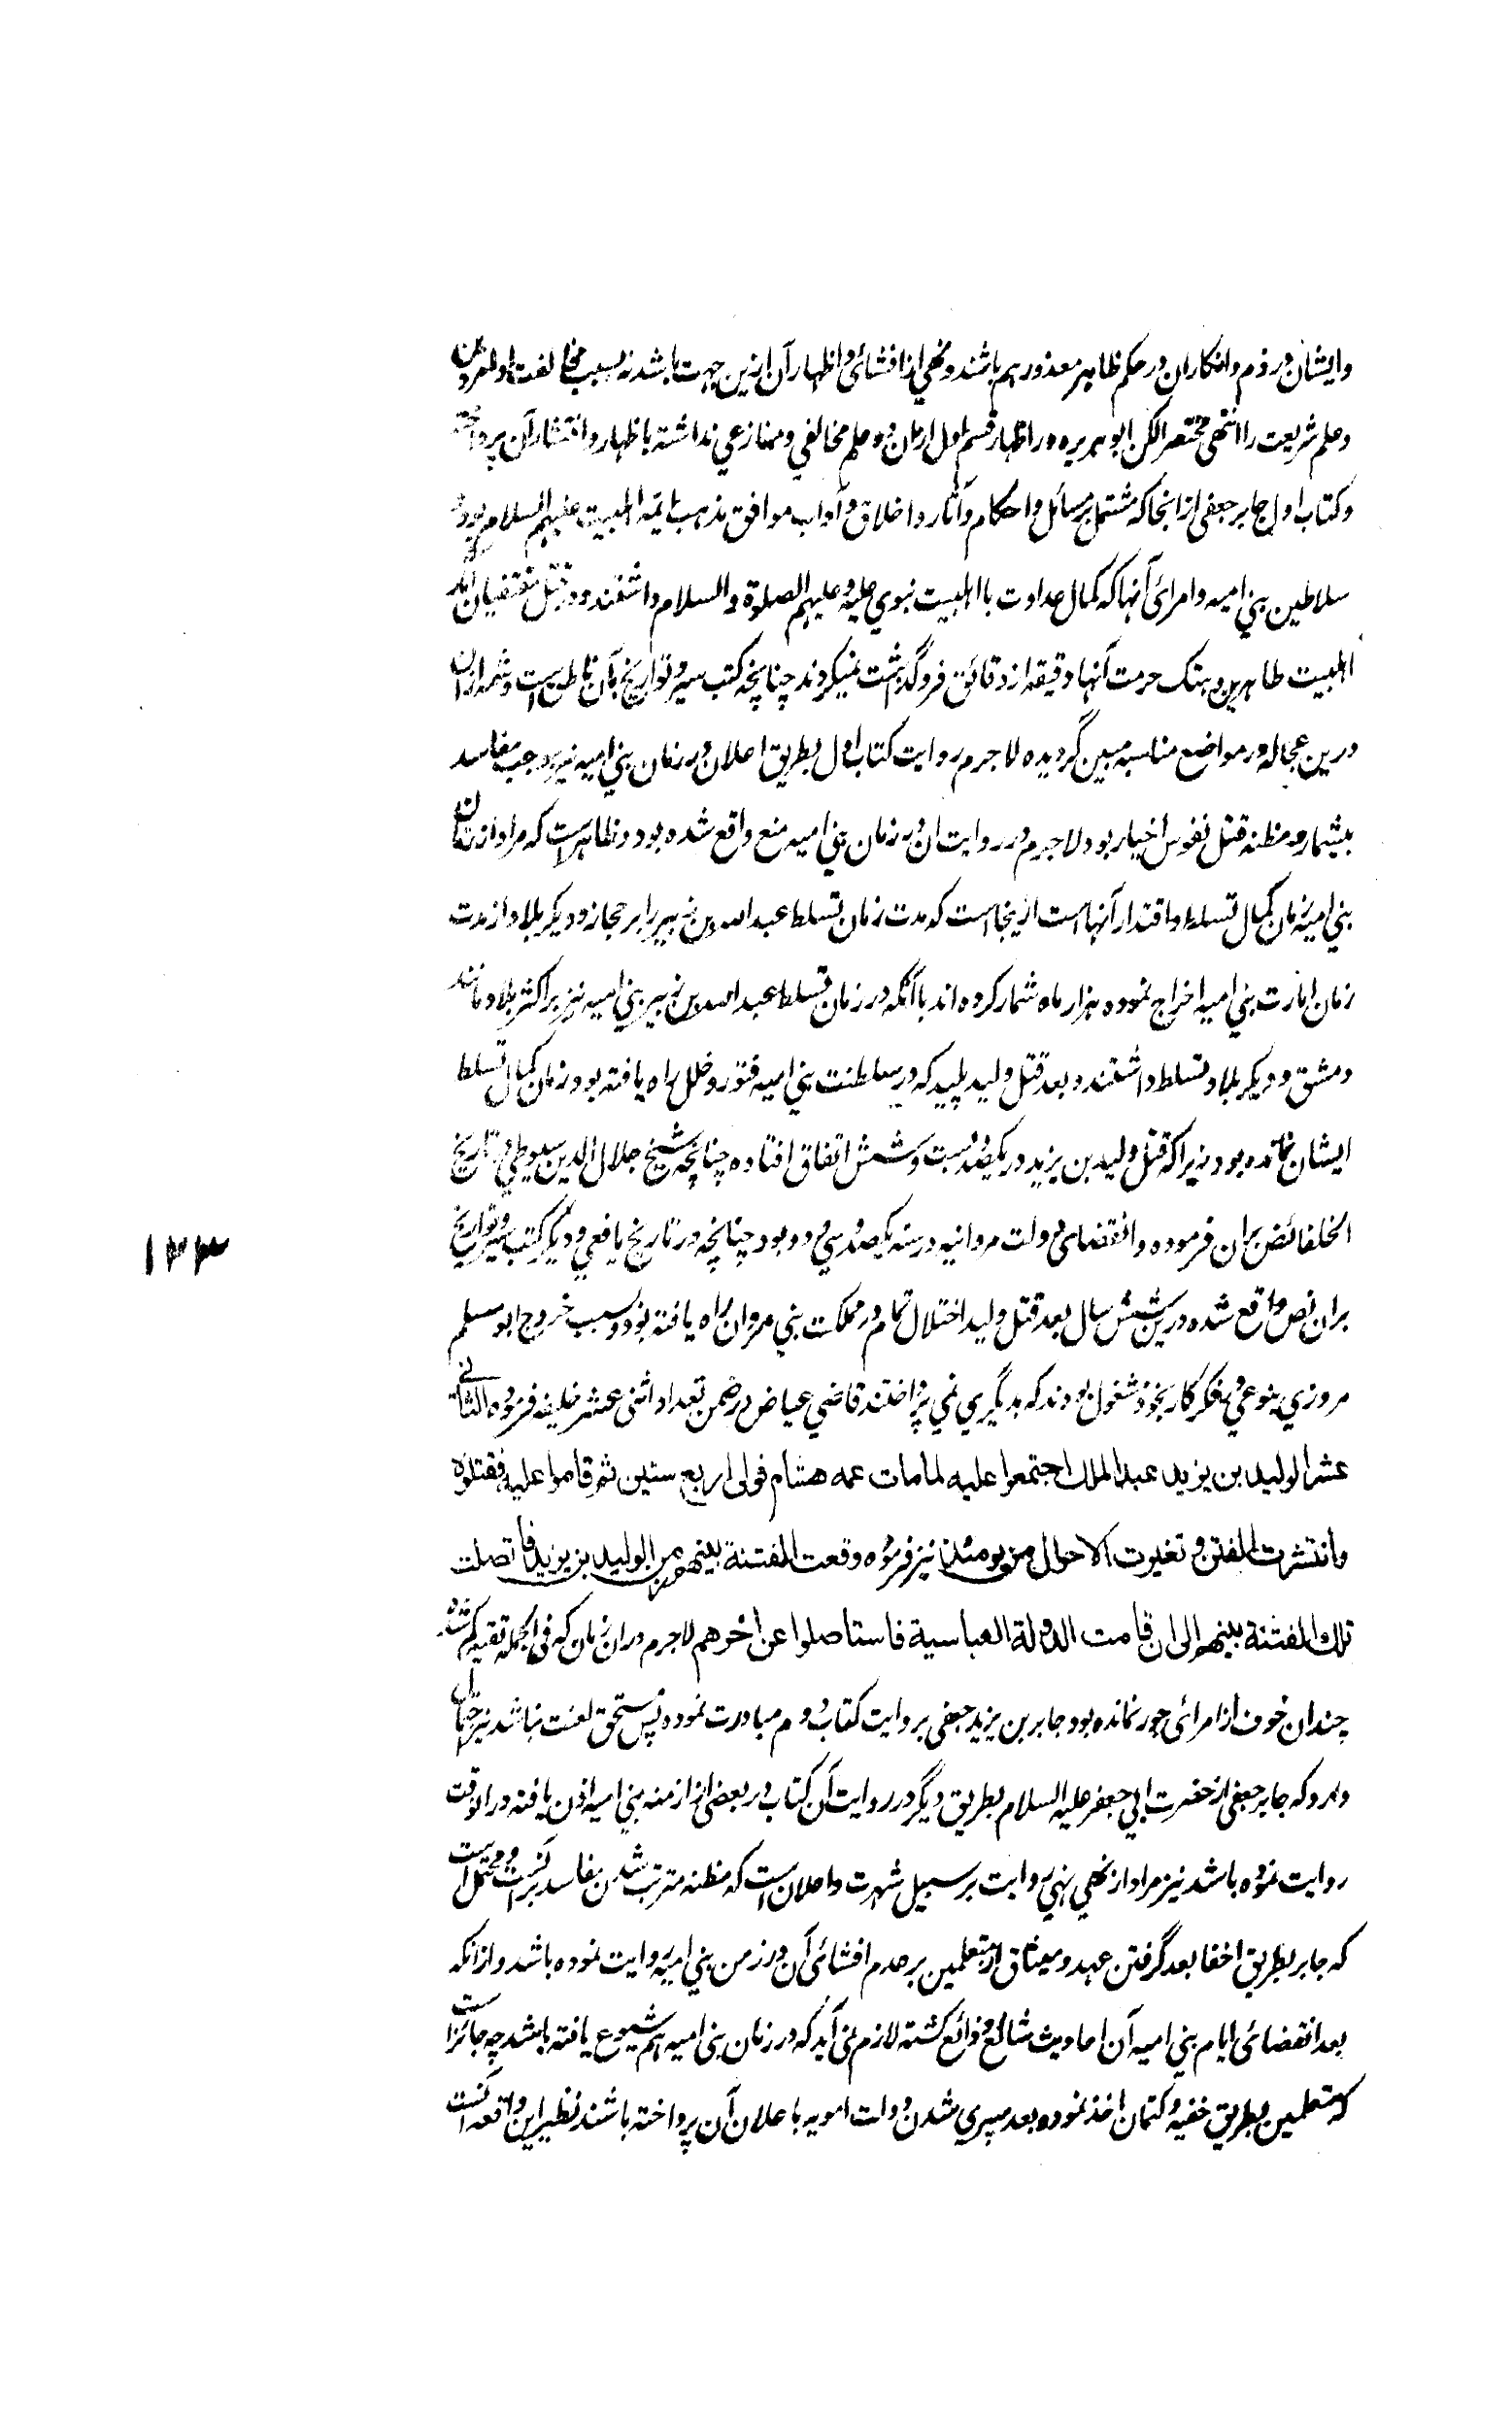 وایشان در ذم وانکار ان در حکم ظاهر معذور هم باشند و نهی از افشائ و اظهار آن ازین جهت باشد نه بسبب مخالفت او امر دین
و علم شریعت را انتهی مختصرا لکن ابو هریره در اظهار قسم اول ازان دو علم مخالفی و منازعی نداشته باظهار و انتشار آن پرداخته
و کتاب اول جابر جعفی از انجا که مشتمل بر مسائل و احکام و آثار و اخلاق و آداب موافق مذهب ائمه اهلبیت علیهم السلام بود
سلاطین بنی امیه و امرائ آنها که کمال عداوت با اهلبیت نبوی علیه و علیهم الصلوة و السلام داشتند و در قتل مقتفیان آثار
اهلبیت طاهرین و هتک حرمت آنها دقیقه از دقائق فروگذاشت نمیکردند چنانچه کتب سیر و تواریخ بآن ناطق است و شمه ازان
درین عجاله در مواضع مناسبه مبین گردیده لا جرم روایت کتاب اول بطریق اعلان در زمان بنی امیه نیز موجب مفاسد
بیشمار و مظنه قتل نفوس اخیار بود لا جرم در روایت ان در زمان بنی امیه منع واقع شده بود و ظاهر است که مراد از زمان
بنی امیه زمان کمال تسلط و اقتدار آنها است ازینجا است که مدت زمان تسلط عبد الله بن زبیر را بر حجاز و دیگر بلاد از مدت
زمان امارت بنی امیه اخراج نموده هزار ماه شمار کرده اند با آنکه در زمان تسلط عبد الله بن زبیر بنی امیه نیز بر اکثر بلاد مانند
دمشق و دیگر بلاد تسلط داشتند و بعد قتل ولید پلید که در سلطنت بنی امیه فتور و خلل راه یافته بود زمان کمال تسلط
ایشان نمانده بود زیرا که قتل ولید بن یزید در یکصد و بست و شش اتفاق افتاده چنانچه شیخ جلال الدین سیوطی در تاریخ
الخلفا نص بران فرموده و انقضای دولت مروانیه در سنه یکصد و سی و دو بود چنانچه در تاریخ یافعی و دیگر کتب سیر و تواریخ
بران نص واقع شده درین شش سال بعد قتل ولید اختلال تمام در مملکت بنی مروان راه یافته بود و بسبب خروج ابو مسلم
مروزی بنوعی بفکر کار بخود مشغول بودند که بدیگری نمی پرداختند قاضی عیاض در ضمن تعداد اثنی عشر خلیفه فرموده الثانی
عشر الولید بن یزید عبد الملک اجتمعوا علیه لما مات عمه هشام فولی اربع سنین ثم قاموا علیه فقتلوه
وانتشرت الفتن و تغیرت الاحوال من یومئذ نیز فرموده وقعت الفتنة بینهم من الولید بن یزید فاتصلت
تلک الفتنة بینهم الی ان قامت الدولة العباسیة فاستاصلوا عن اخرهم لا جرم دران زمان که فی الجمله تقیه کم شده
چندان خوف از امرائ جور نمانده بود جابر بن یزید جعفی بروایت کتاب دوم مبادرت نموده پس مستحق لعنت نباشد نیز احتمال
دارد که جابر جعفی از حضرت ابی جعفر علیه السلام بطریق دیگر در روایت آن کتاب در بعض از ازمنه بنی امیه اذن یافته در انوقت
روایت نموده باشد نیز مراد از نهی نهی روایت بر سبیل شهرت و اعلان است که مظنه مترتب شدن مفاسد کثیر است و محتمل است
که جابر بطریق اخفا بعد گرفتن عهد و میثاق از متعلمین بر عدم افشائ آن در زمن بنی امیه روایت نموده باشد و از انکه
بعد انقضائ ایام بنی امیه آن احادیث شائع و ذائع گشته لازم نمی آید که در زمان بنی امیه هم شیوع یافته باشد چه جائز است
که متعلمین بطریق خفیه و کتمان اخذ نموده بعد سپری شدن دولت امویه باعلان آن پرداخته باشند نظیر این واقعه آنست
۱۳۳